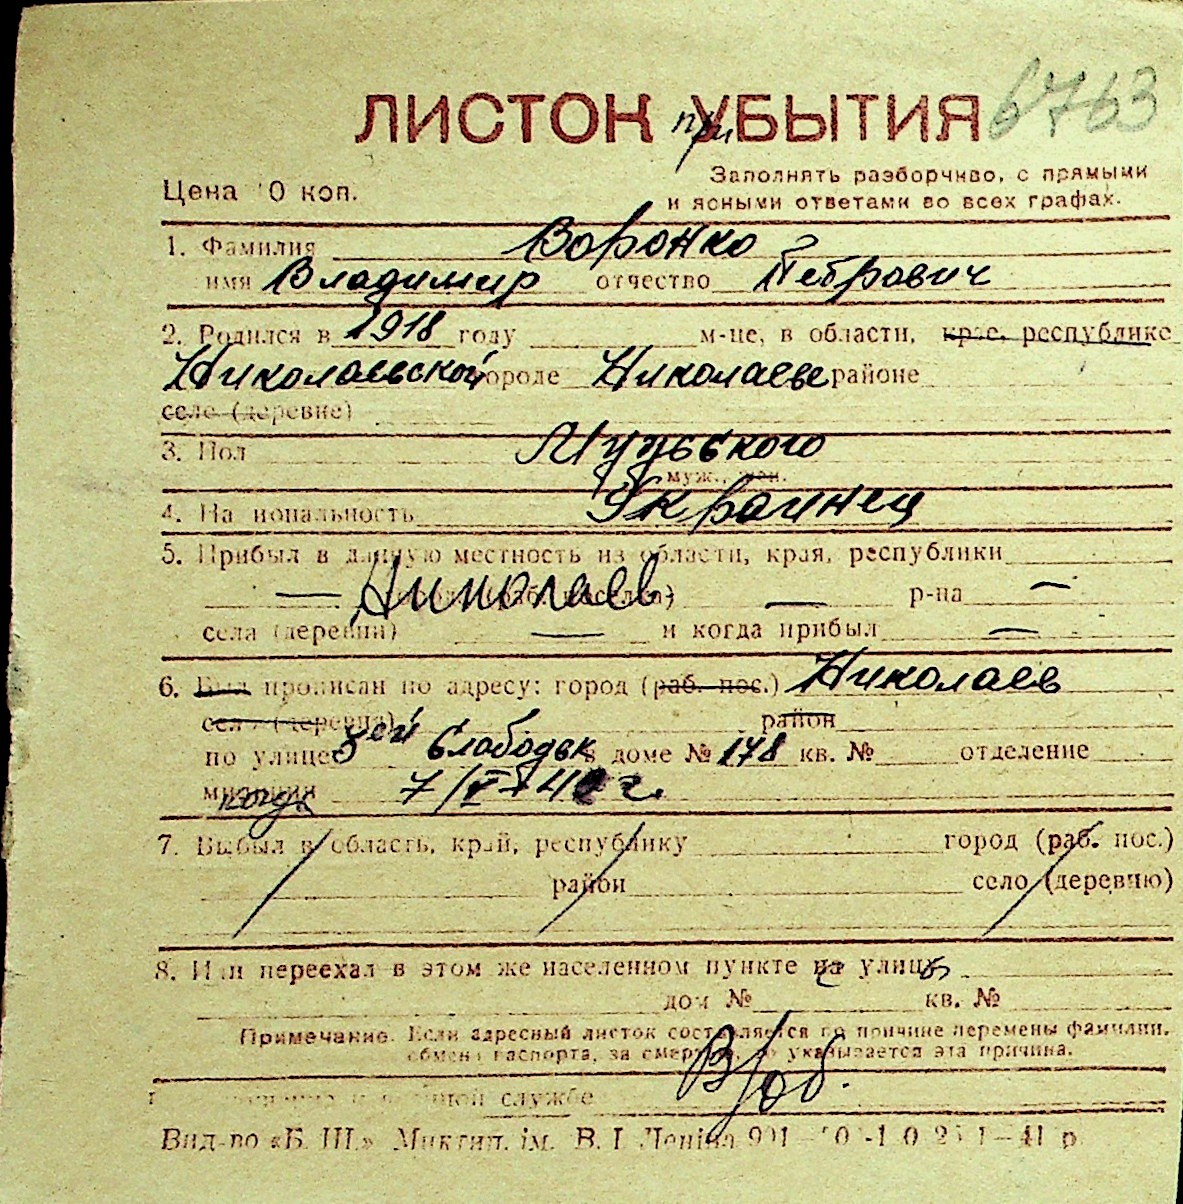 6763
ЛИСТОК при УБЫТИЯ
Цена 0 коп.
Заполнять разборчиво, с прямыми
и ясными ответами во всех графах.
1. Фамилия Воронко
имя Владимир отчество Петрович
2. Родился в 1918 году м-це, в области, крае, республике
Николаевской городе Николаеве районе
село (деревне)
3. Пол Мужского
муж., жен.
4. На иональность Украинец
5. Прибыл в данную местность из области, края, республики
— Николаев — р-на —
села (деревни) — и когда прибыл —
6. Был прописан по адресу: город (раб. пос.) Николаев
село (деревня) район
по улице 5ей Слободск в доме № 178 кв. № отделение
милиции
7. Выбыл в область, край, республику город (раб. пос.)
район село (деревню)
8. Или переехал в этом же населенном пункте на улицу
дом № кв. №
Примечание. Если адресный листок составляется по причине перемены фамилии,
обмена паспорта, за смертью, то указывается эта причина.
В/об.
службе
Вид-во «Б. Ш.» Миктип. ім. В. І. Леніна